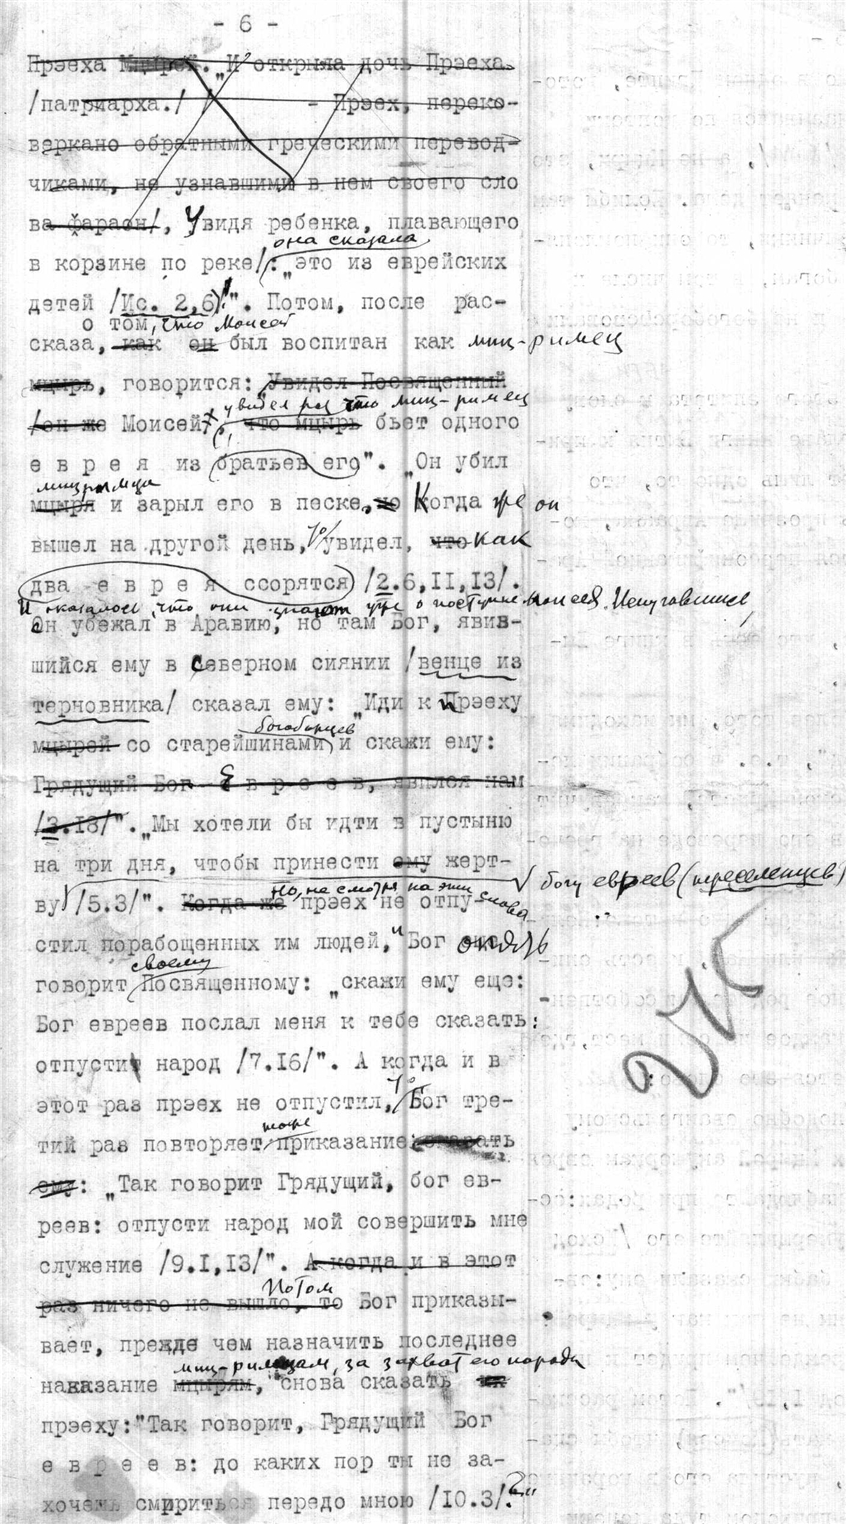 - 6 -
Прэеха Мцырей. "И открыла дочь Прэеха
/патриарха./ / - Прэех, переко-
веркано обратными греческими перевод-
чиками, не узнавшими в нем своего сло
ва фараон/, Увидя ребенка, плавающего
она сказала
в корзине по реке/: "это из еврейских
детей /Ис. 2,6/!". Потом, после рас-
о том, что Моисей
сказа, как он был воспитан как миц-римец
мцырь, говорится: "Увидел Посвященный
увидел раз что миц-римец
/он же Моисей/ что мцырь бьет одного
еврея из братьев его". "Он убил
миц-римца
мцыря и зарыл его в песке, но Когда же он
вышел на другой день, то увидел, что как
два еврея ссорятся /2.6,II,I3/.
И оказалось, что они знают уже о поступке Моисея. Испугавшись,
Он убежал в Аравию, но там Бог, явив-
шийся ему в Северном сиянии /венце из
терновника/ сказал ему: "Иди к Прэеху
богоборцев
мцырей со старейшинами и скажи ему:
Грядущий Бог Евреев, явился нам
/3.I8/". "Мы хотели бы идти в пустыню
на три дня, чтобы принести ему жерт-
богу евреев (переселенцев)
но, не смотря на это снова
ву /5.3/". Когда же прэех не отпу-
стил порабощенных им людей, "Бог опять
своему
говорит Посвященному: "скажи ему еще:
Бог евреев послал меня к тебе сказать:
отпусти народ /7.I6/". А когда и в
то
этот раз прэех не отпустил, Бог тре-
тоже
тий раз повторяет приказание: сказать
ему: "Так говорит Грядущий, бог ев-
реев: отпусти народ мой совершить мне
служение /9.I,I3/". А когда и в этот
Потом
раз ничего не вышло, то Бог приказы-
вает, прежде чем назначить последнее
миц-римцам, за захват его народа
наказание мцырям, "снова сказать
прэеху:"Так говорит, Грядущий Бог
евреев: до каких пор ты не за-
хочешь смириться передо мною /I0.3/?"